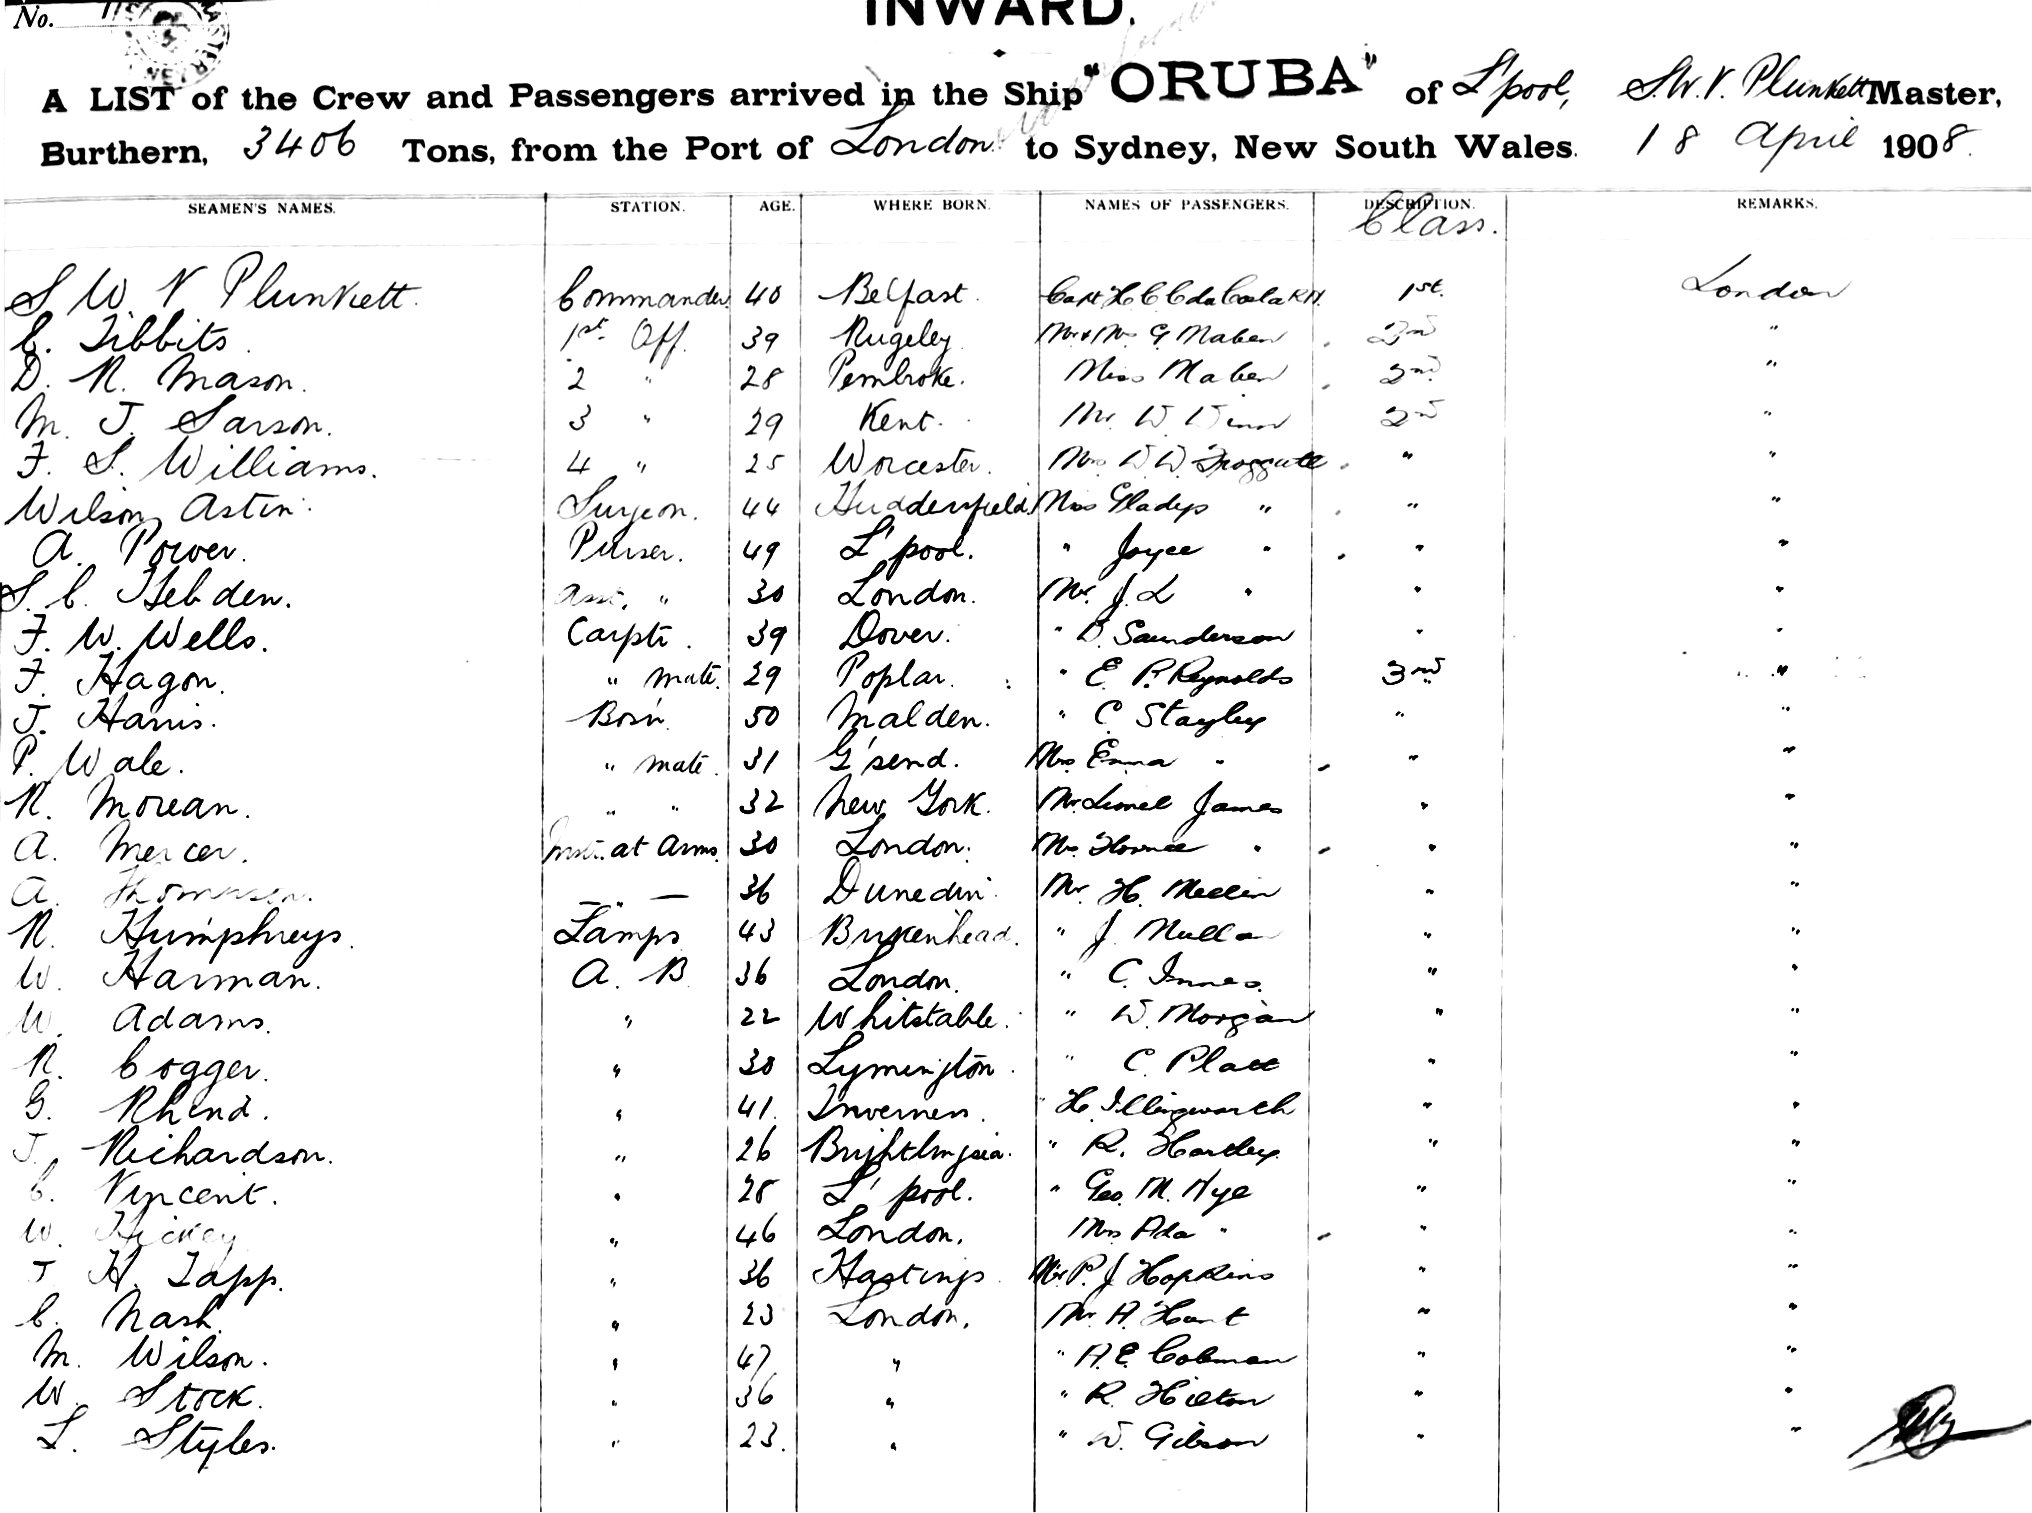 No.
INWARD.
A LIST of the Crew and Passengers arrived in the Ship "ORUBA" of L'pool, S.W.V. Plunkett Master,
Burthern, 3406 Tons, from the Port of London to Sydney, New South Wales. 18 April 1908.
SEAMEN'S NAMES. STATION. AGE. WHERE BORN. NAMES OF PASSENGERS. DESCRIPTION. REMARKS.
Class.
S W V Plunkett. Commander 40 Belfast. Capt. H C E 1st. London
C. Tibbits. 1st Off. 39 Rugeley Mr & Mrs G Maben 2nd "
D. R. Mason. 2 " 28 Pembroke. Miss Maben 2nd "
M. J. Sarson. 3 " 29 Kent. Mr. W Winn 2nd "
F. S. Williams. 4 " 25 Worcester. Mrs W W Froggatt " "
Wilson Astin. Surgeon. 44 Huddersfield. Miss Gladys " " "
A. Power. Purser. 49 L'pool. " Joyce " " "
S. C. Hebden. Asst. " 30 London. Mr. J. L " " "
F. W. Wells. Carptr. 39 Dover. " D. Saunderson " "
F. Hagon. " mate. 29 Poplar. " E. P. Reynolds 3rd "
J. Harris. Bos'n. 50 Malden. " C Stayley " "
P. Wale. " mate. 31 G'send. Mrs Emma " " "
R. Morean. " " 32 New York. Mr Lionel James " "
A. Mercer. Mstr. at Arms. 30 London. Mrs Florence " " "
A. Thomason. — " — 36 Dunedin. Mr H. Mellin " "
R. Humphreys. Lamps 43 Birkenhead. " J. Mulla " "
W. Harman. A. B 36 London. " C. Innes. " "
W. Adams. " 22 Whitstable. " W. Morgan " "
R. Cogger. " 30 Lymington. " C. Platt " "
G. Rhind. " 41. Inverness. " H. Illingworth " "
J. Richardson. " 26 Brightlingsea. " R. Hartley " "
C. Vincent. " 28 L'pool. " Geo. M. Nye " "
W. Hickey " 46 London. Mrs Ada " " "
J H. Tapp. " 36 Hastings. Mr P. J Hopkins " "
C. Nash. " 23 London. Mr A. Hart " "
M. Wilson. " 47 " " A. E. Colman " "
W. Stock. " 36 " " R. Hilton " "
L. Styles. " 23. " " W. Gibson " "